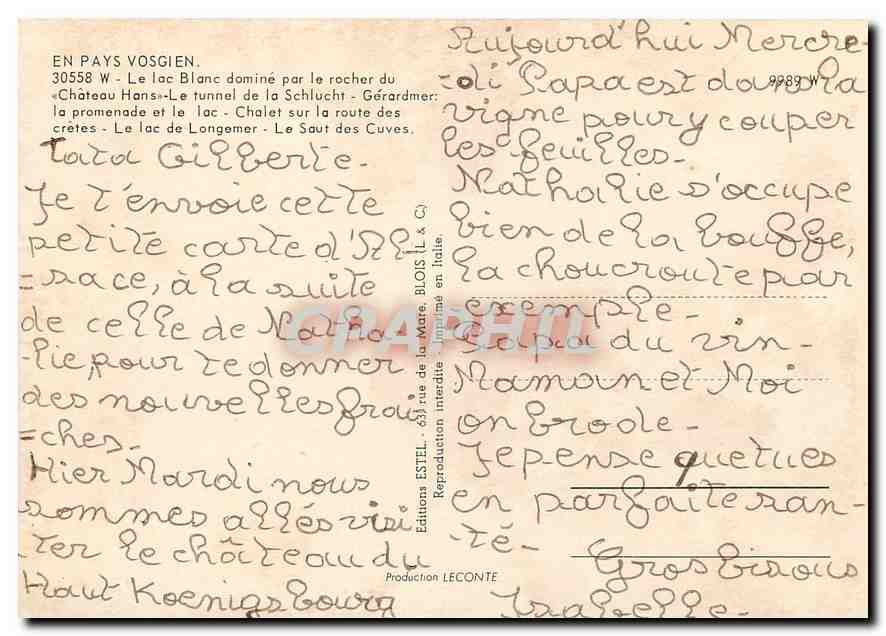 EN PAYS VOSGIEN.
30558 W - Le lac Blanc dominé par le rocher du
«Château Hans»-Le tunnel de la Schlucht - Gérardmer:
la promenade et le lac - Chalet sur la route des
crêtes - Le lac de Longemer - Le Saut des Cuves.
Tata Gilberte-
Je t'envoie cette
petite carte d'Al
=sace, à la suite
de celle de Natha-
lie, pour te donner
des nouvelles fraî
=ches-
Hier Mardi nous
sommes allés visi
ter le château du
Haut Koenigsbourg
Editions ESTEL - 63, rue de la Mare, BLOIS (L & C.)
Reproduction interdite - Imprimé en Italie.
Production LECONTE
CPAPHIL
9989 W
Aujourd'hui Mercre-
=di Papa est dans la
vigne pour y couper
les feuilles-
Nathalie s'occupe
bien de la bouffe,
la choucroute par
exemple-
Papa du vin-
Maman et Moi
on brode-
Je pense que tu es
en parfaite san-
té-
Gros bisous
Isabelle-